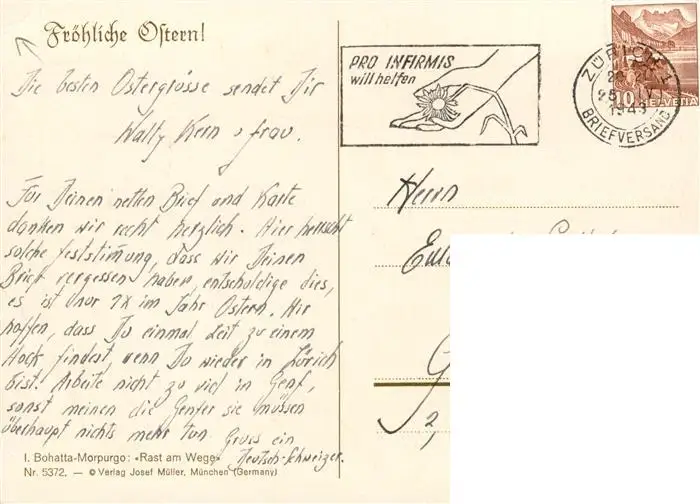 Fröhliche Ostern!
Die besten Ostergrüsse sendet Dir
Walty Kern & frau.
Für Deinen netten Brief und Karte
danken wir recht herzlich. Hier herrscht
solche feststimung, dass wir Deinen
Brief vergessen haben, entschuldige dies,
es ist nur 1x im Jahr Ostern. Wir
hoffen, dass Du einmal Zeit zu einem
Hock findest, wenn Du wieder in Zürich
bist. Arbeite nicht zu viel in Genf,
sonst meinen die Genfer sie müssen
überhaupt nichts mehr tun. Gruss ein
Deutsch-Schweizer.
I. Bohatta-Morpurgo: «Rast am Wege»
Nr. 5372. — © Verlag Josef Müller, München (Germany)
PRO INFIRMIS
will helfen
ZÜRICH 1
25. IV
BRIEFVERSAND
10 HELVETIA
Herrn
G
2,